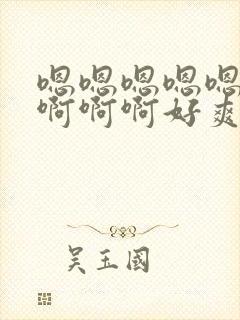 嗯嗯嗯嗯嗯
啊啊啊好爽
吴玉國